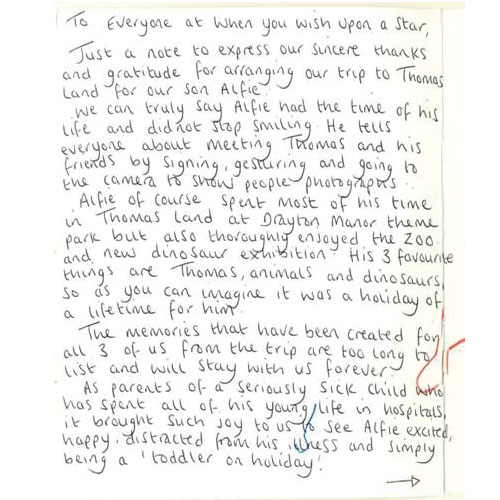 To Everyone at When you wish upon a Star,
Just a note to express our sincere thanks
and gratitude for arranging our trip to Thomas
Land for our son Alfie.
We can truly say Alfie had the time of his
life and did not stop smiling. He tells
everyone about meeting Thomas and his
friends by signing, gesturing and going to
the camera to show people photographs.
Alfie of course spent most of his time
in Thomas Land at Drayton Manor theme
park but also thoroughly enjoyed the zoo
and new dinosaur exhibition. His 3 favourite
things are Thomas, animals and dinosaurs,
so as you can imagine it was a holiday of
a lifetime for him.
The memories that have been created for
all 3 of us from the trip are too long to
list and will stay with us forever.
As parents of a seriously sick child who
has spent all of his young life in hospitals,
it brought such joy to us to see Alfie excited,
happy, distracted from his illness and simply
being a 'toddler on holiday'.